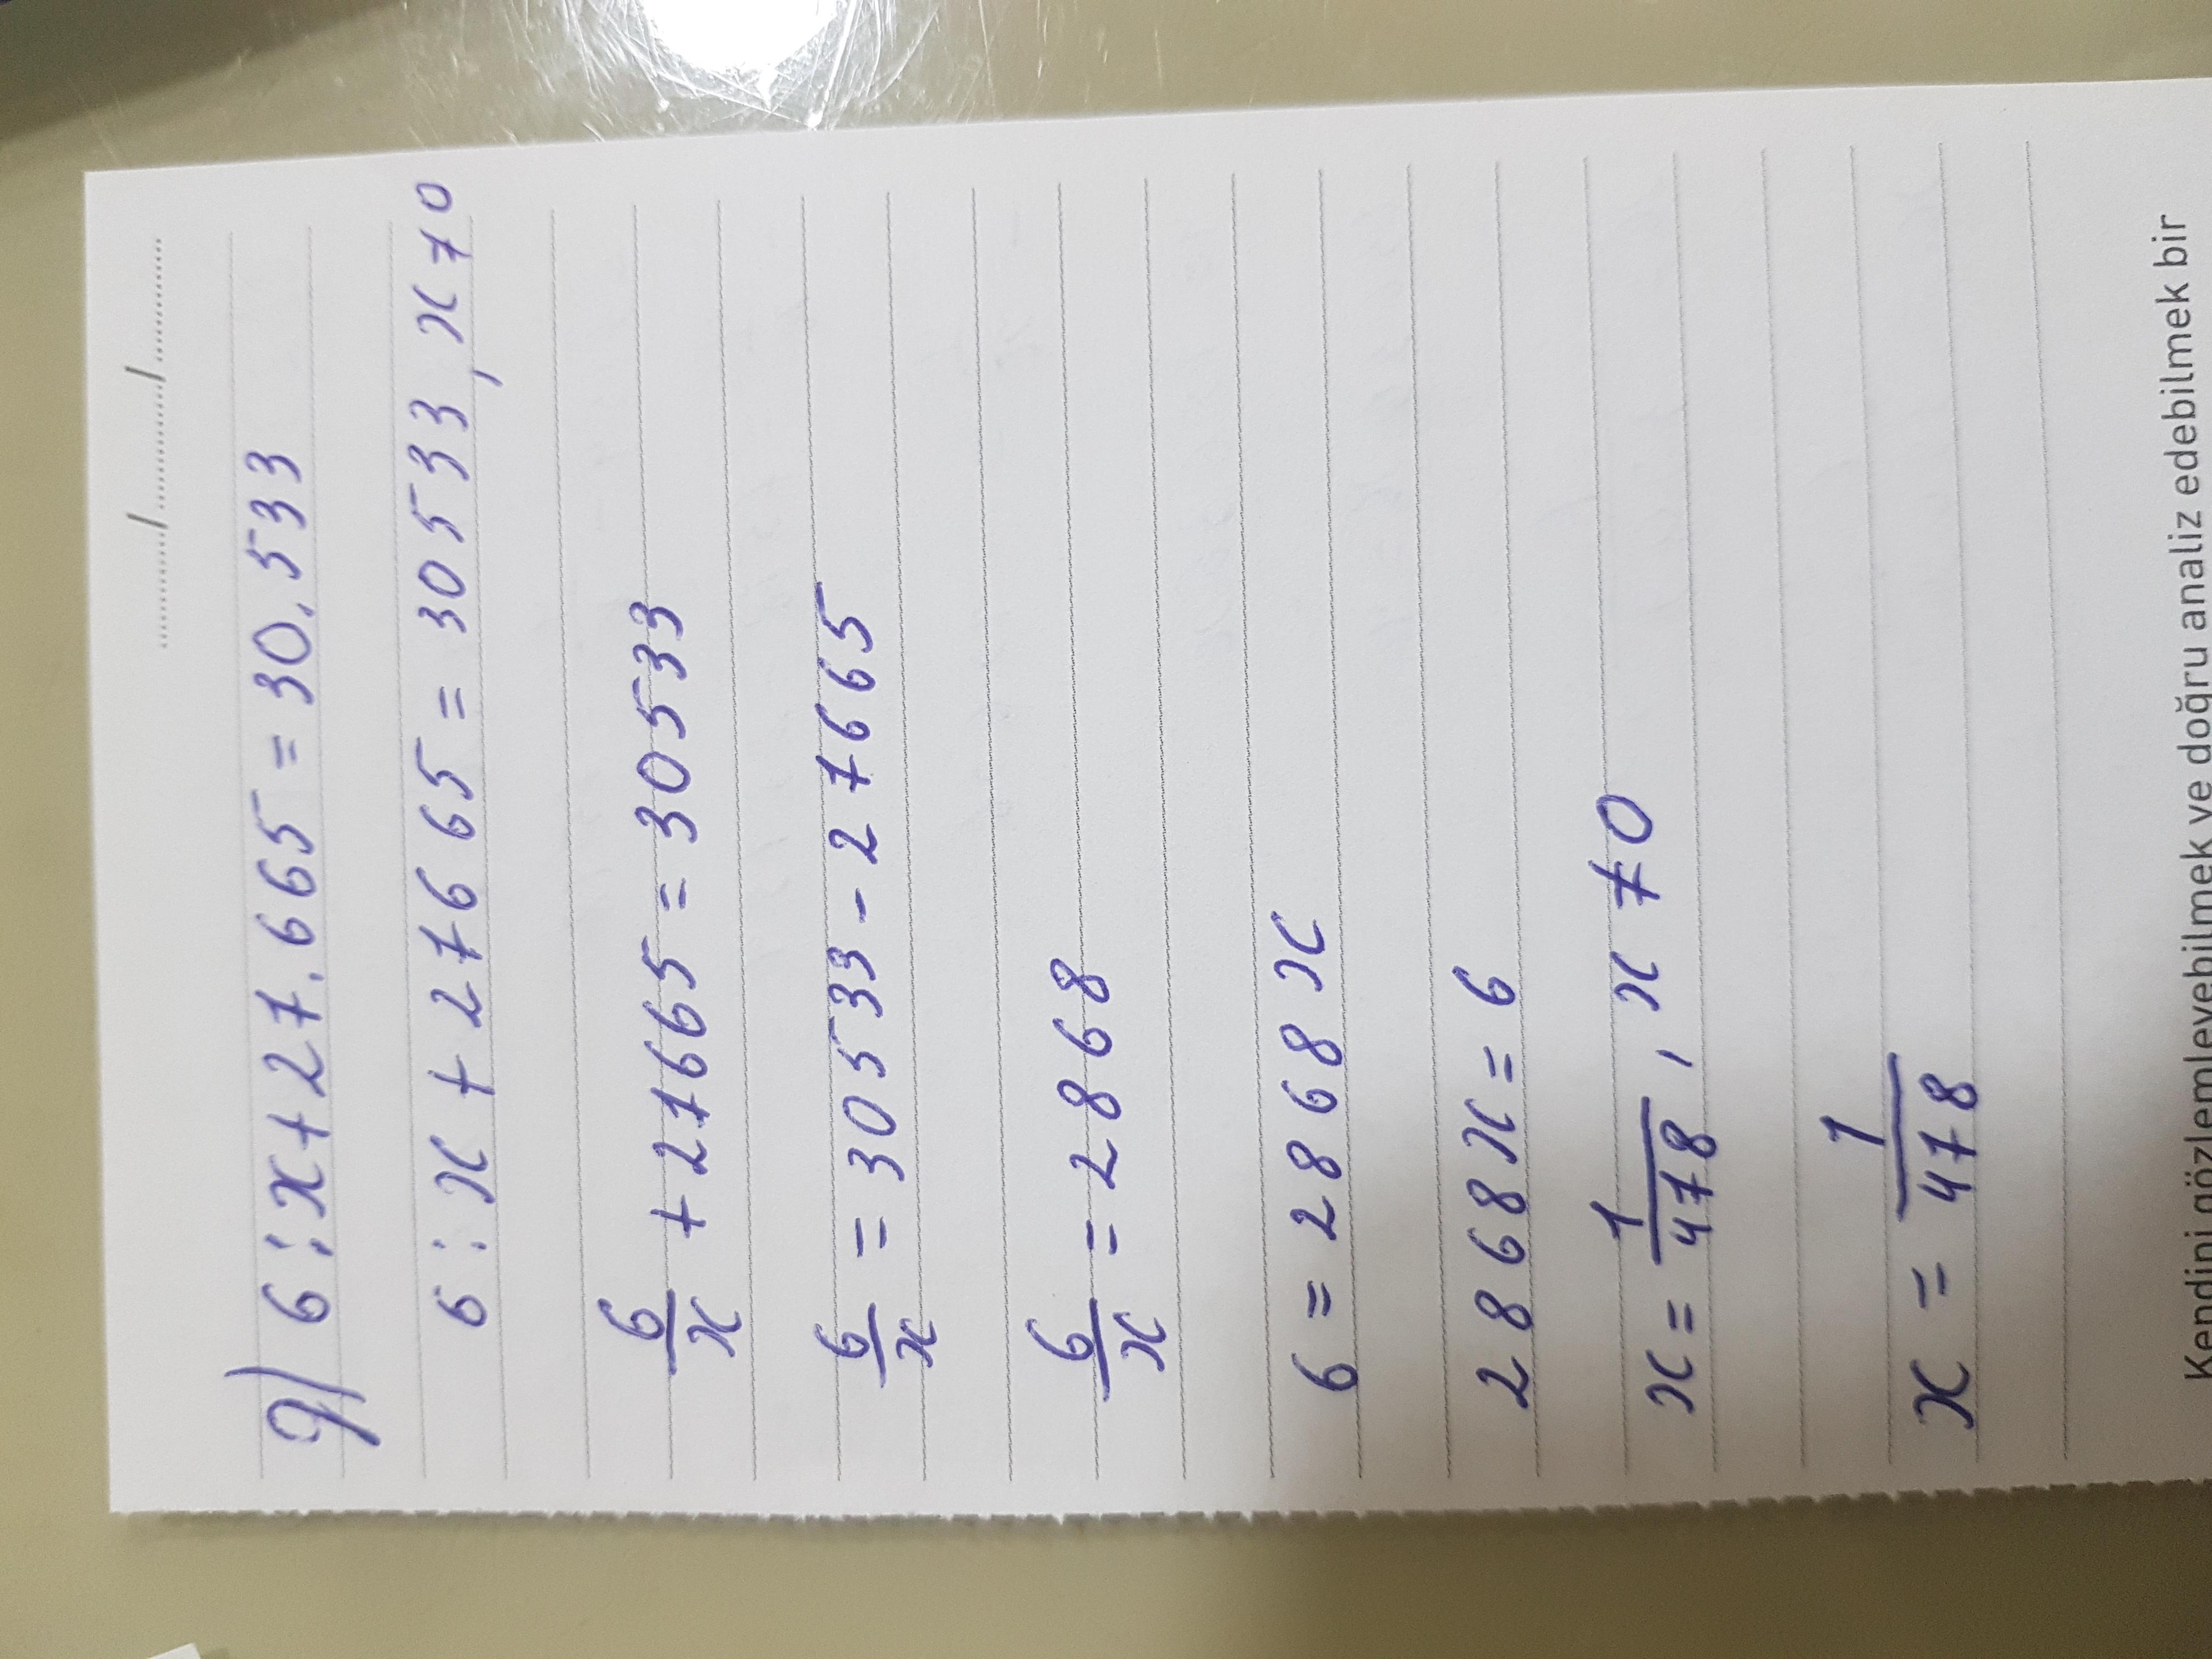 ........../........../..........
g) 6:x+27.665=30.533
6:x+27665=30533, x≠0
6/x+27665=30533
6/x=30533-27665
6/x=2868
6=2868x
2868x=6
x=1/478, x≠0
x=1/478
Kendini gözlemleyebilmek ve doğru analiz edebilmek bir